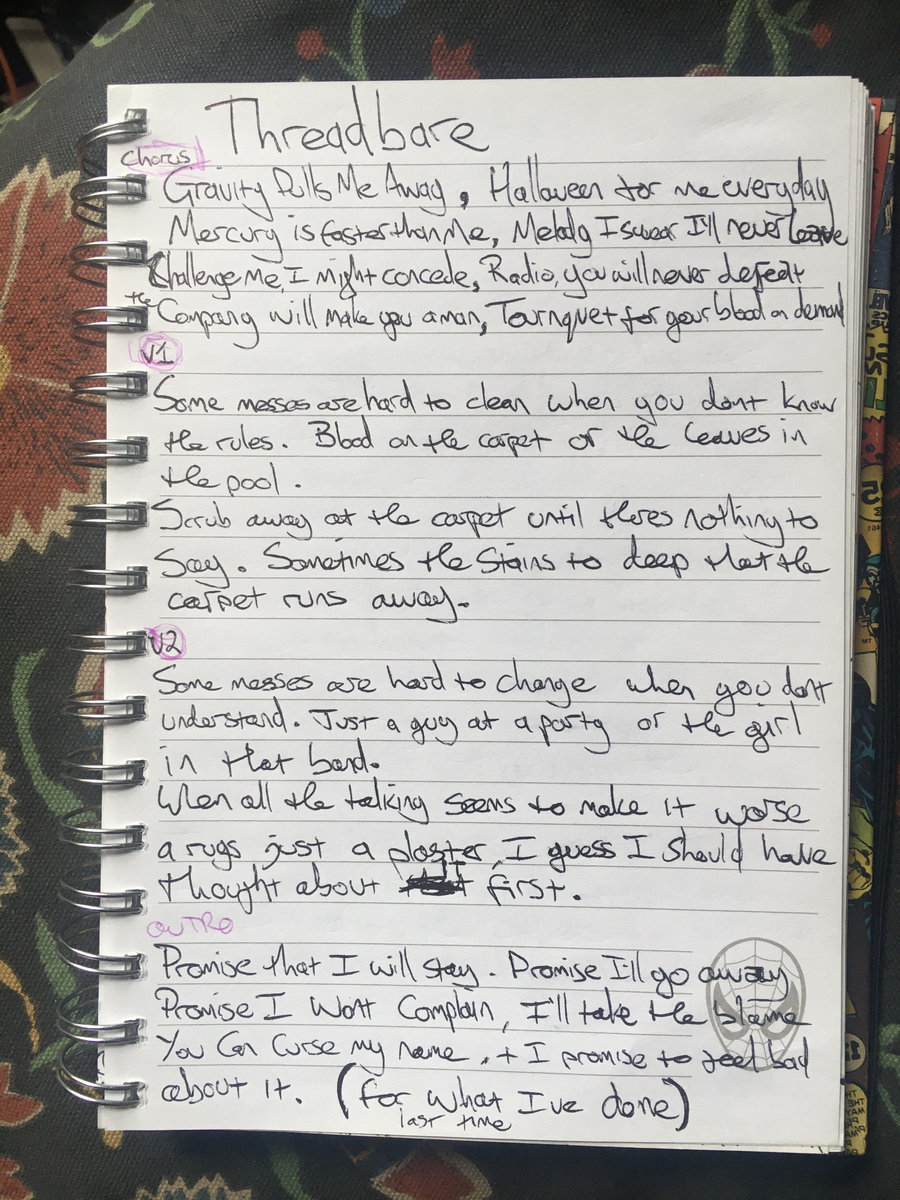 Threadbare
Chorus
Gravity Pulls Me Away, Halloween for me everyday
Mercury is faster than Me, Melody I swear I'll never leave
Challenge Me, I might concede, Radio, you will never defeat
the Company will make you a man, Tournquet for your blood on demand
V1
Some messes are hard to clean when you dont know
the rules. Blood on the carpet or the leaves in
the pool.
Scrub away at the carpet until theres nothing to
Say. Sometimes the Stains to deep that the
carpet runs away.
V2
Some messes are hard to change when you dont
understand. Just a guy at a party or the girl
in that band.
When all the talking seems to make it worse
a rugs just a plaster, I guess I should have
thought about first.
OUTRO
Promise that I will stay. Promise I'll go away
Promise I Wont Complain, I'll take the blame
You Can Curse my name, + I promise to feel bad
about it. (for what I've done)
last time